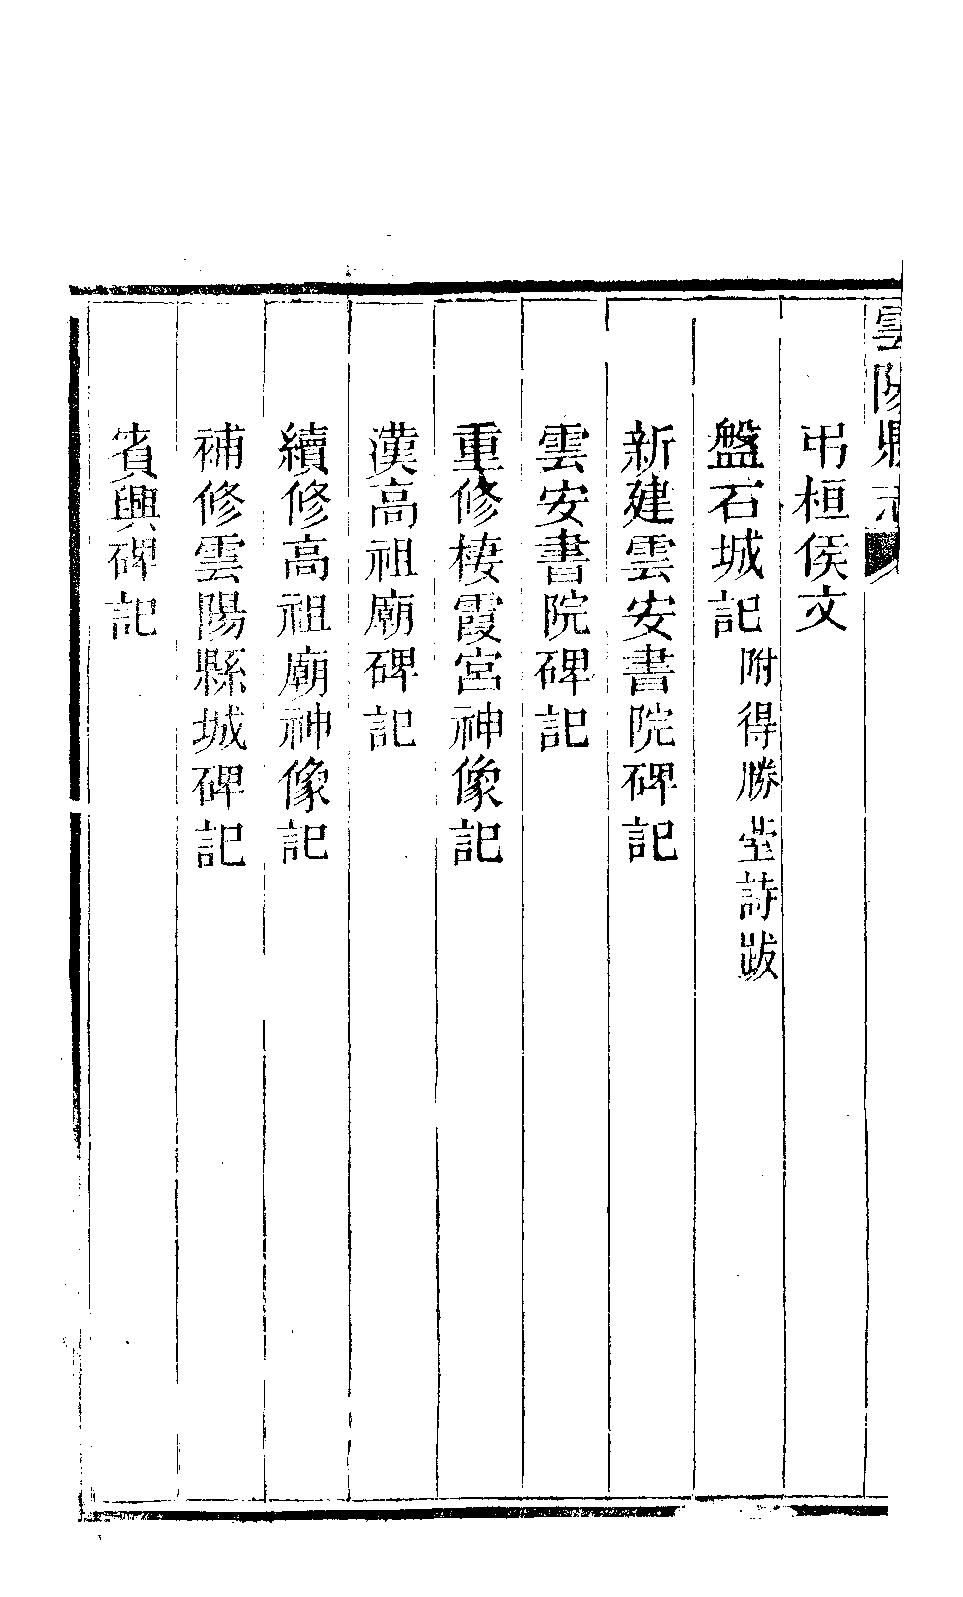 雲陽縣志
弔桓侯文
盤石城記 附得勝堂詩跋
新建雲安書院碑記
雲安書院碑記
重修棲霞宮神像記
漢高祖廟碑記
續修高祖廟神像記
補修雲陽縣城碑記
賓興碑記